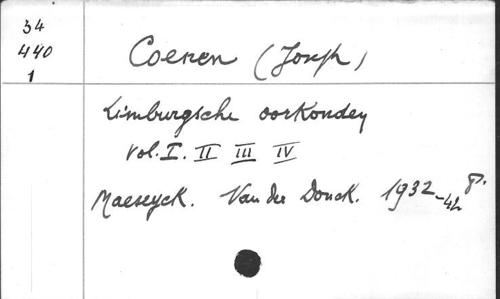 34
440
1
Coenen (Joseph)
Limburgsche oorkonden
Vol. I. II III IV
Maeseyck. Van der Donck. 1932-42 8°.